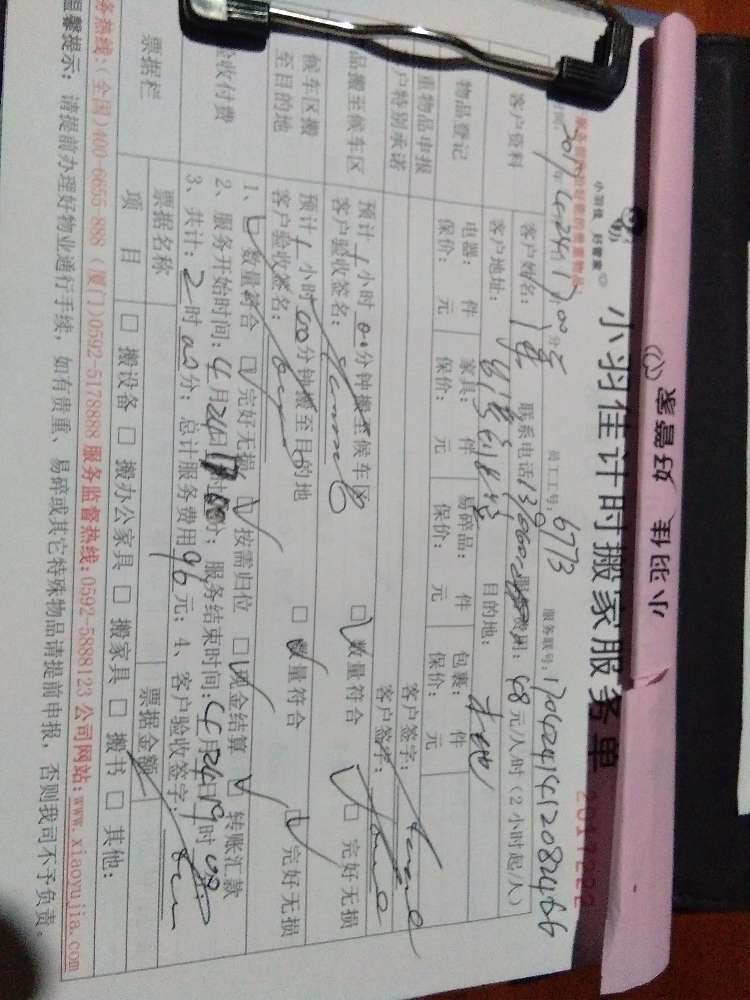 小羽佳 好管家
小羽佳 好管家
小羽佳计时搬家服务单
2017222
2017年4月24日17 00分 员工工号：6773 服务联号：
客户资料 客户姓名： 联系电话 费用：48元/人/时（2小时起/人）
客户地址： 目的地：本地
物品登记 电器： 件 家具： 件 易碎品： 件 包裹： 件
保价： 元 保价： 元 保价： 元 保价： 元
重物品申报 客户签字：
户特别承诺 客户签字：
品搬至候车区 预计1小时00分钟搬至候车区 □数量符合 □完好无损
客户验收签名：
候车区搬至目的地 预计1小时00分钟搬至目的地 □数量符合 □完好无损
客户验收签名：
验收付费 1、□数量符合 □完好无损 □按需归位 □现金结算 □转账汇款
2、服务开始时间：4月24日17时00分；服务结束时间：4月24日19时00
3、共计：2时00分；总计服务费用96元；4、客户验收签字：
票据栏 票据名称 票据金额
项目 □搬设备 □搬办公家具 □搬家具 □搬书 □其他：
务热线：(全国)400-6655-888 (厦门)0592-5178888 服务监督热线：0592-5888123 公司网站：www.xiaoyujia.com
温馨提示：请提前办理好物业通行手续，如有贵重、易碎或其它特殊物品请提前申报，否则我司不予负责。